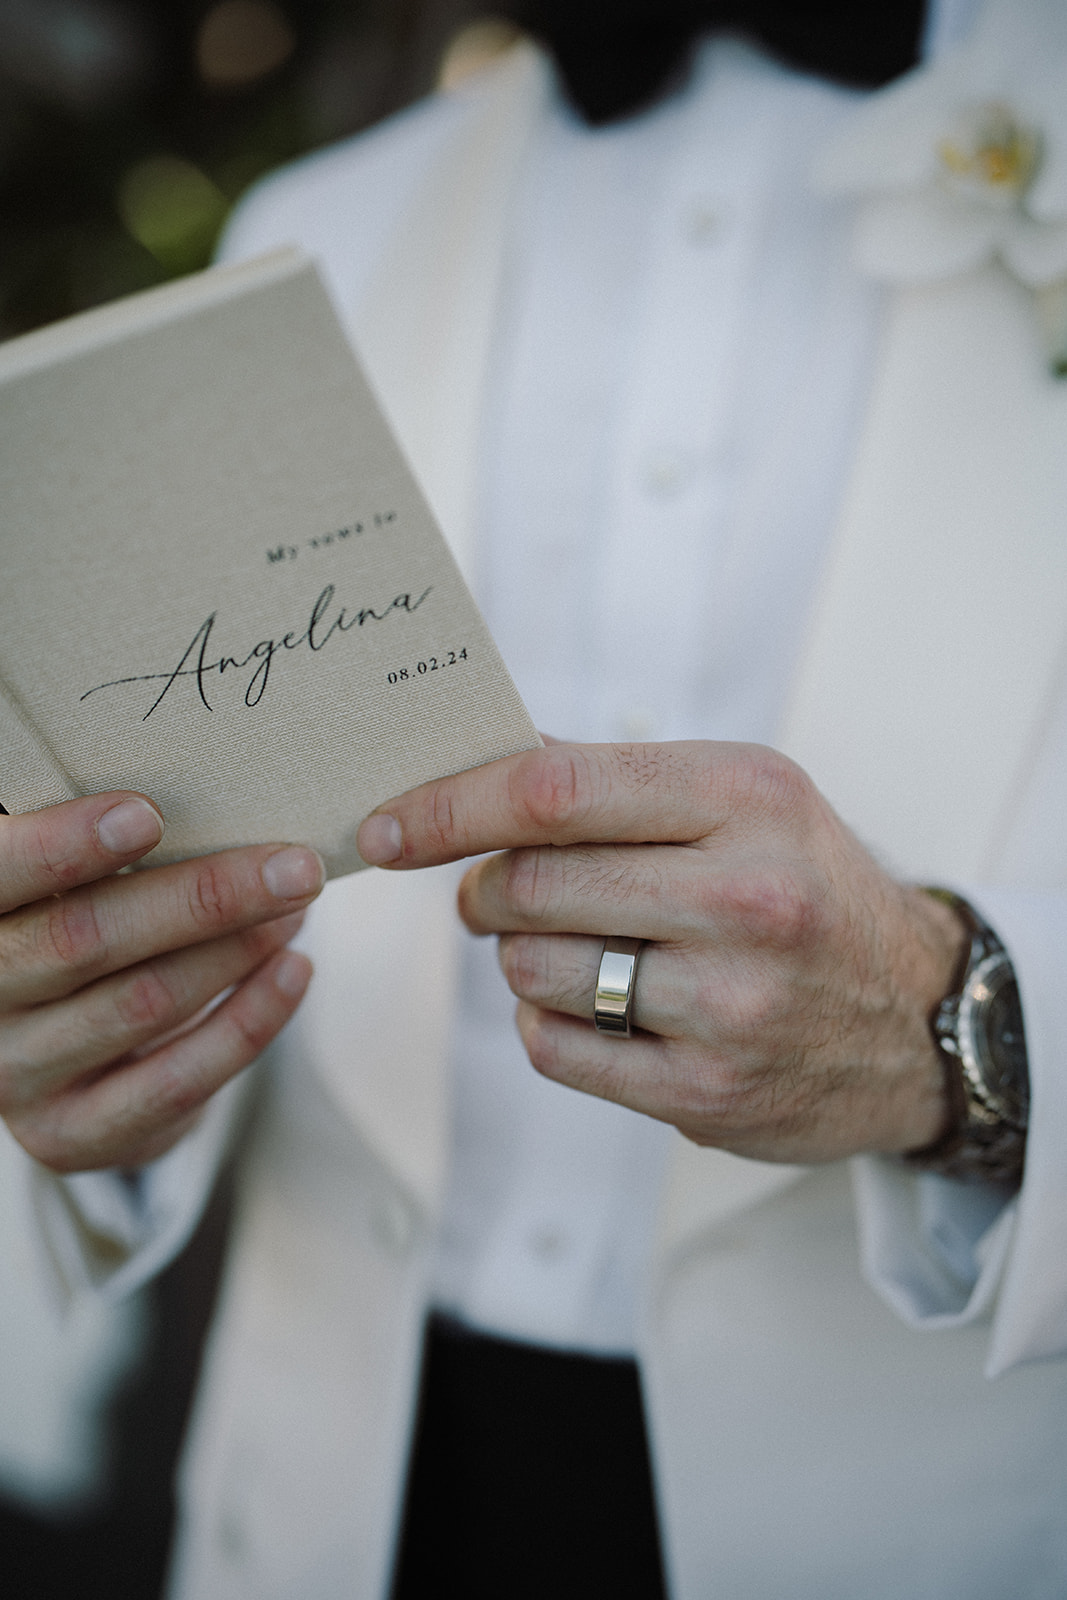 My vows to
Angelina
08.02.24